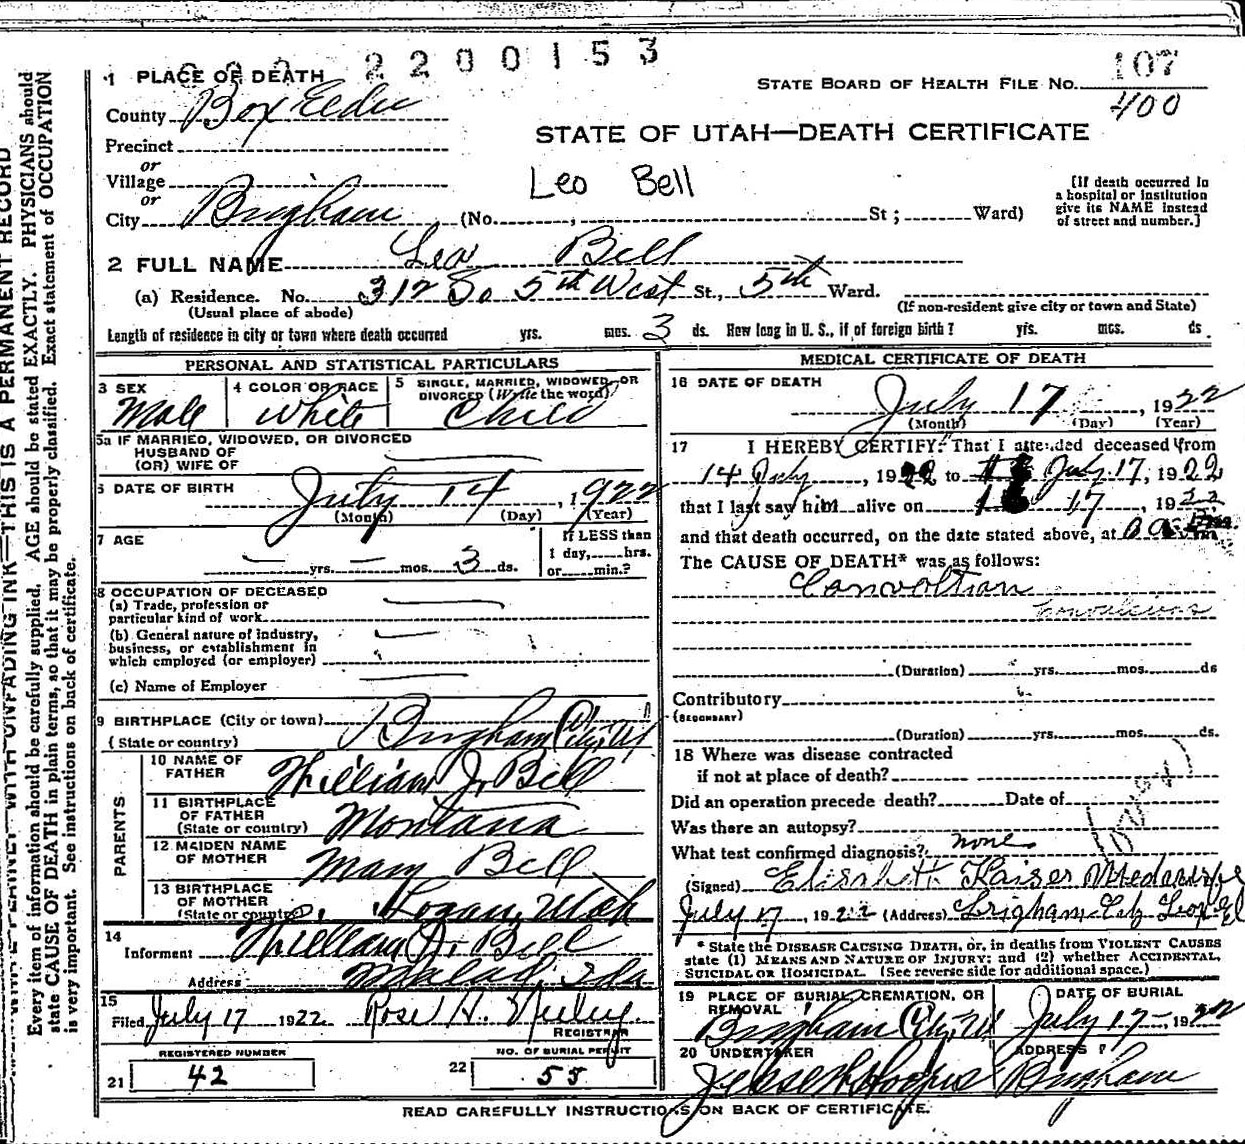 2200153
107
400
1 PLACE OF DEATH
STATE BOARD OF HEALTH FILE No.
County Box Elder
STATE OF UTAH—DEATH CERTIFICATE
Precinct
or
Village
Leo Bell
[If death occurred in a hospital or institution give its NAME instead of street and number.]
or
City Brigham (No. , St; Ward)
2 FULL NAME Leo Bell
(a) Residence. No. 312 So 5th West St., 5th Ward.
(Usual place of abode) (If non-resident give city or town and State)
Length of residence in city or town where death occurred yrs. mos. 3 ds. How long in U. S., if of foreign birth? yrs. mos. ds.
PERSONAL AND STATISTICAL PARTICULARS
3 SEX Male
4 COLOR OR RACE White
5 SINGLE, MARRIED, WIDOWED, OR DIVORCED (Write the word) Child
5a IF MARRIED, WIDOWED, OR DIVORCED
HUSBAND OF
(OR) WIFE OF
6 DATE OF BIRTH July 14, 1922
(Month) (Day) (Year)
7 AGE yrs. mos. 3 ds.
If LESS than
1 day, hrs.
or min.?
8 OCCUPATION OF DECEASED
(a) Trade, profession or
particular kind of work
(b) General nature of industry,
business, or establishment in
which employed (or employer)
(c) Name of Employer
9 BIRTHPLACE (City or town) Brigham City Ut
(State or country)
PARENTS
10 NAME OF FATHER William J. Bell
11 BIRTHPLACE OF FATHER Montana
(State or country)
12 MAIDEN NAME OF MOTHER Mary Bell
13 BIRTHPLACE OF MOTHER Logan, Utah
(State or country)
14
Informent William J. Bell
Address Malad, Ida
15
Filed July 17 1922 Rose H.
REGISTRAR
REGISTERED NUMBER
21 42
NO. OF BURIAL PERMIT
22 55
MEDICAL CERTIFICATE OF DEATH
16 DATE OF DEATH
July 17, 1922
(Month) (Day) (Year)
17 I HEREBY CERTIFY: That I attended deceased from
14 July, 1922 to July 17, 1922
that I last saw him alive on 17 1922
and that death occurred, on the date stated above, at
The CAUSE OF DEATH* was as follows:
Convoltion
(Duration) yrs. mos. ds
Contributory
(SECONDARY)
(Duration) yrs. mos. ds.
18 Where was disease contracted
if not at place of death?
Did an operation precede death? Date of
Was there an autopsy?
What test confirmed diagnosis? none
(Signed) Elisabeth Kaiser
July 17, 1922 (Address) Brigham
* State the DISEASE CAUSING DEATH, or, in deaths from VIOLENT CAUSES
state (1) MEANS AND NATURE OF INJURY; and (2) whether ACCIDENTAL,
SUICIDAL OR HOMICIDAL. (See reverse side for additional space.)
19 PLACE OF BURIAL, CREMATION, OR REMOVAL
Brigham City Ut
DATE OF BURIAL
July 17, 1922
20 UNDERTAKER
ADDRESS
Brigham
READ CAREFULLY INSTRUCTIONS ON BACK OF CERTIFICATE.
THIS IS A PERMANENT RECORD
Every item of information should be carefully supplied. AGE should be stated EXACTLY. PHYSICIANS should
state CAUSE OF DEATH in plain terms, so that it may be properly classified. Exact statement of OCCUPATION
is very important. See instructions on back of certificate.